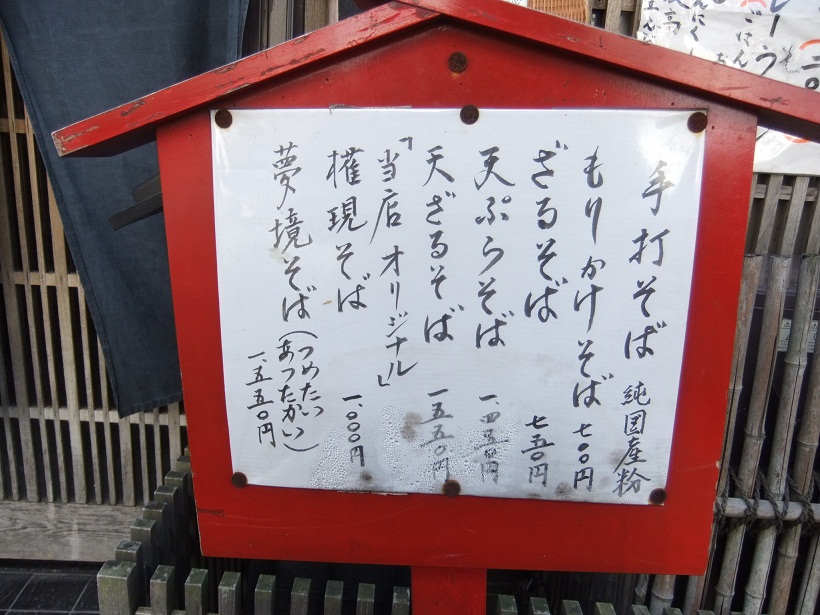 手打そば 純国産粉
もりかけそば 七〇〇円
ざるそば 七五〇円
天ぷらそば 一、四五〇円
天ざるそば 一五五〇円
「当店オリジナル」
権現そば 一、〇〇〇円
夢境そば(つめたい あつたかい)
一五五〇円